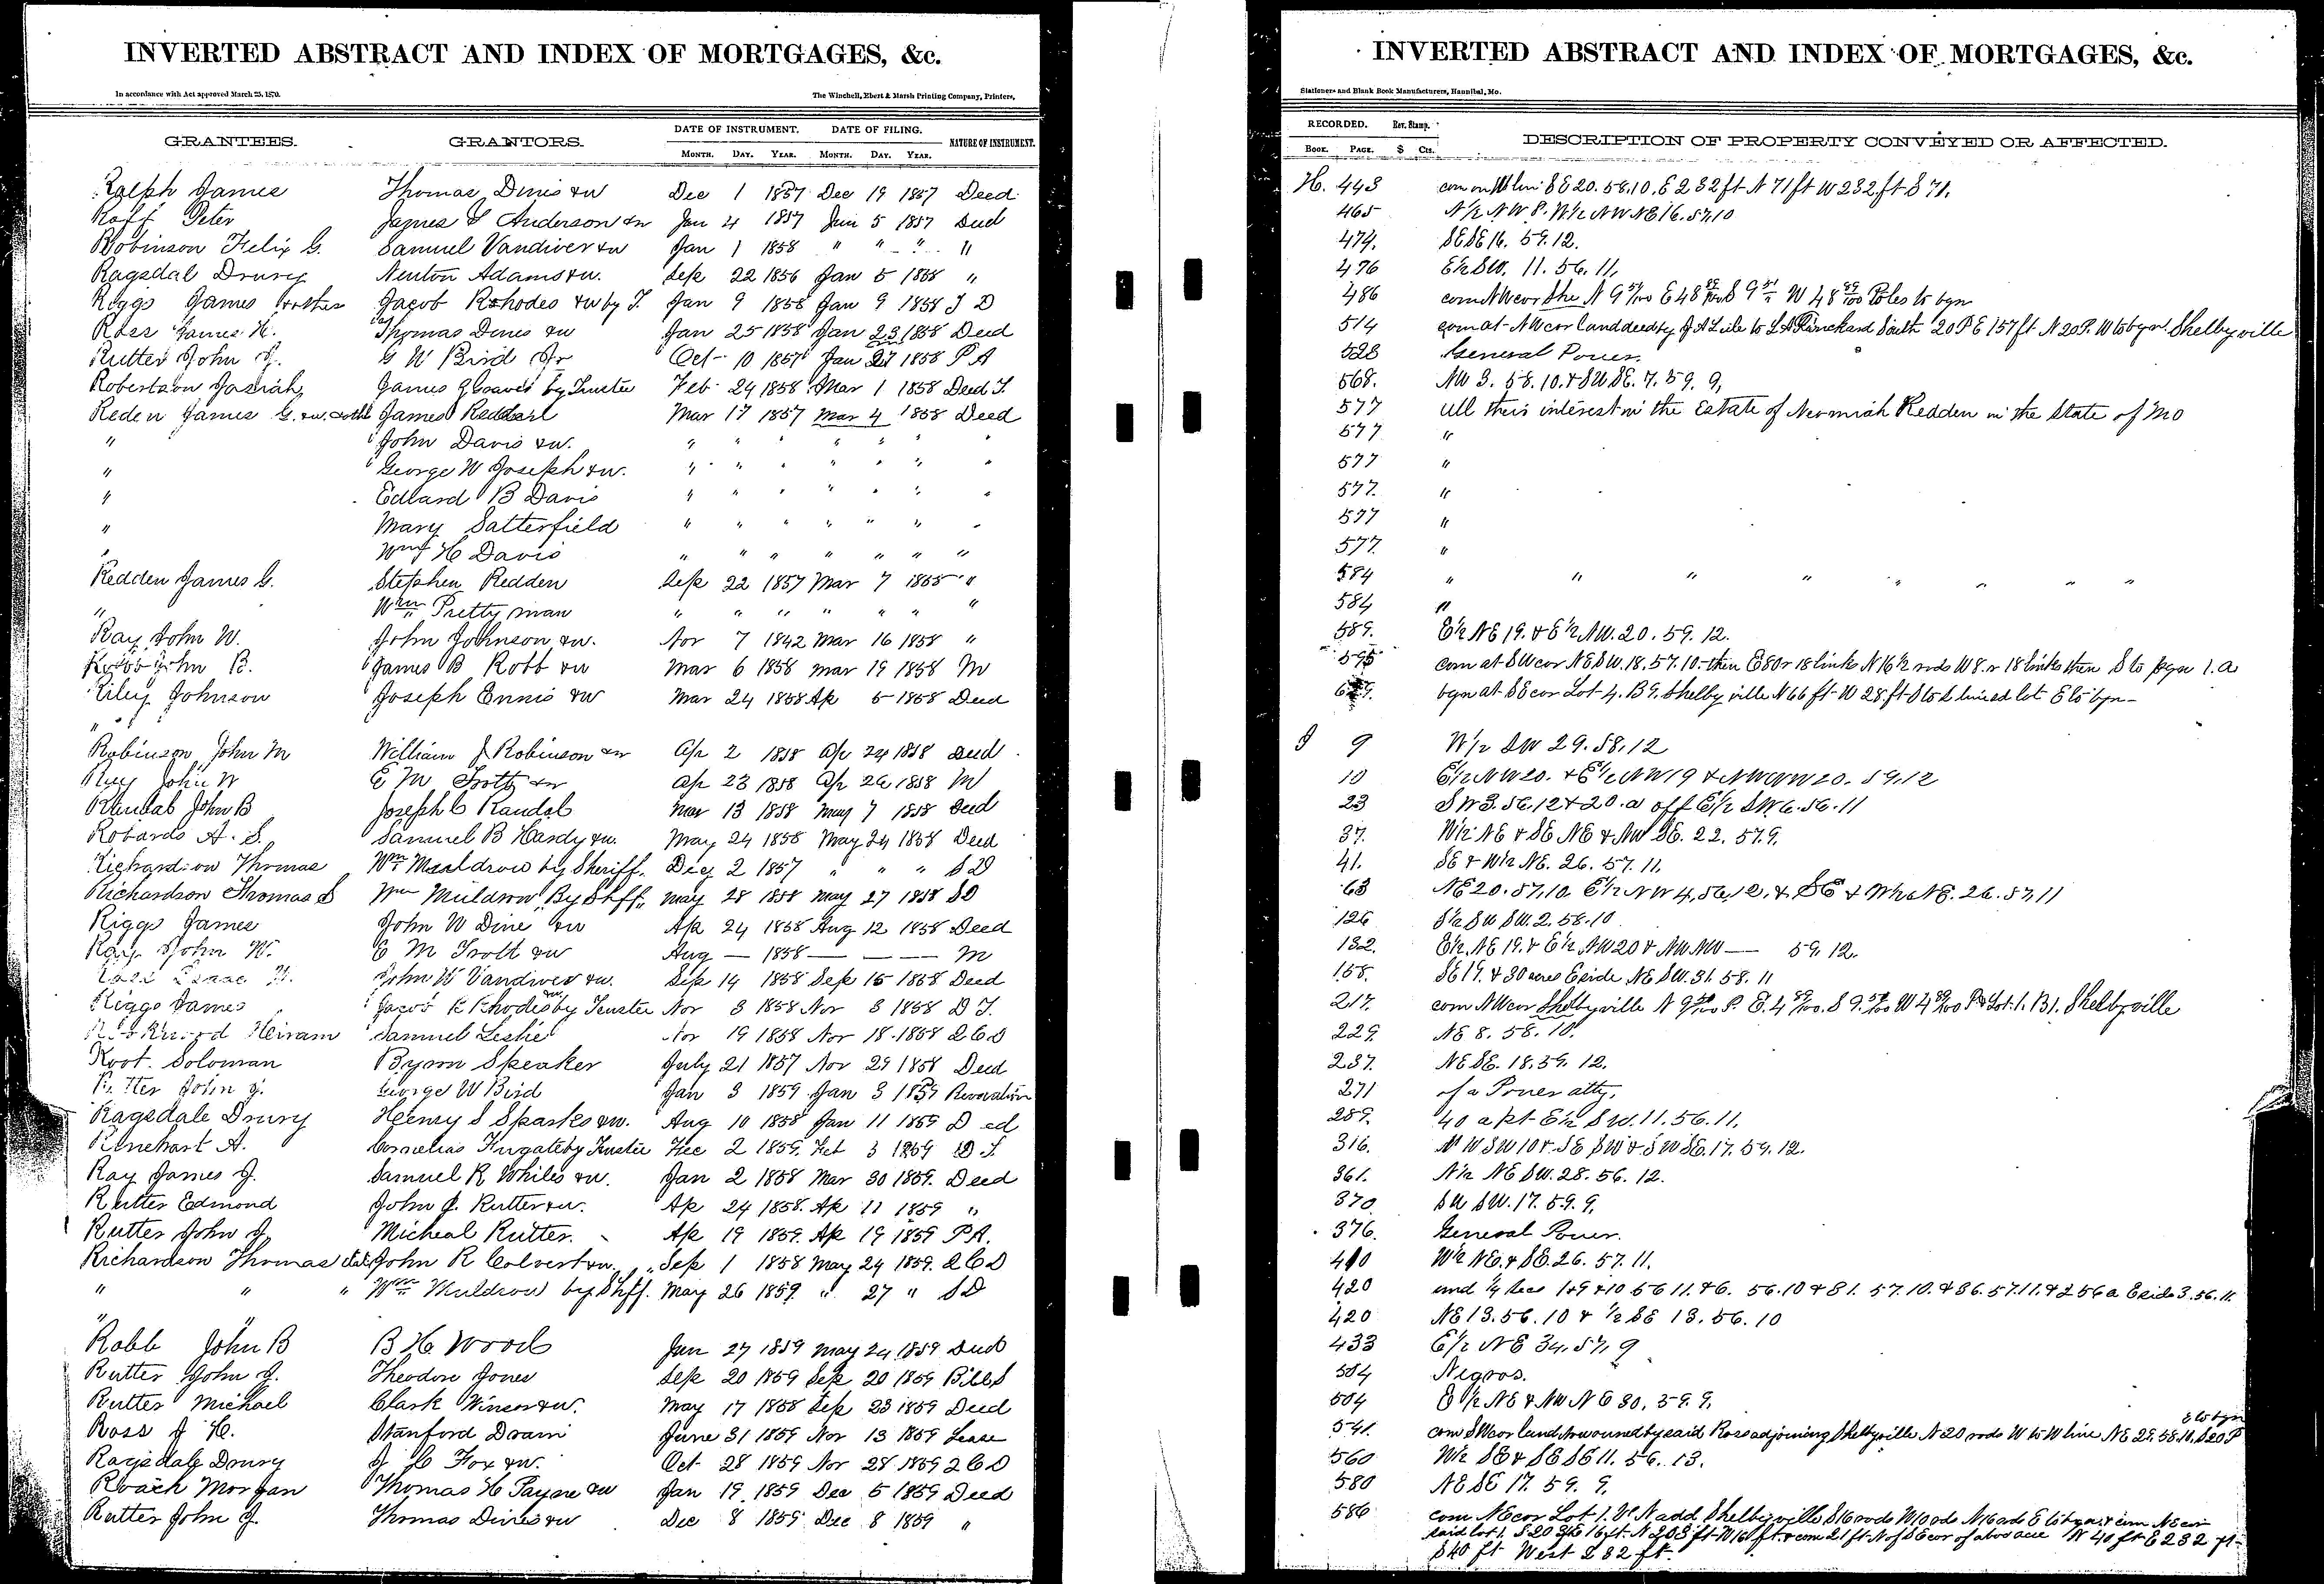 INVERTED ABSTRACT AND INDEX OF MORTGAGES, &c.
In accordance with Act approved March 25, 1870.
The Winchell, Ebert & Marsh Printing Company, Printers,
GRANTEES. GRANTORS. DATE OF INSTRUMENT. DATE OF FILING. NATURE OF INSTRUMENT.
MONTH. DAY. YEAR. MONTH. DAY. YEAR.
Ralph James Thomas Dines &w Dec 1 1857 Dec 19 1857 Deed
Roff Peter James S Anderson &w Jan 4 1857 Jan 5 1857 Deed
Robinson Felix G. Samuel Vandiver &w Jan 1 1858 " " " "
Ragsdal Drury Newton Adams &w. Sep 22 1856 Jan 5 1858 "
Riggs James Jacob Rhodes &w by T. Jan 9 1858 Jan 9 1858 T D
Ross James H. Thomas Dines &w Jan 25 1858 Jan 23 1858 Deed
Rutter John J. G W Bird Jr Oct 10 1857 Jan 27 1858 P A
Robertson Josiah James Graves by Trustee Feb 24 1858 Mar 1 1858 Deed T.
Reden James G. &w. James Reddarl Mar 17 1857 Mar 4 1858 Deed
" John Davis &w. " " " " " " "
" George W Joseph &w. " " " " " " "
" Edward B Davis " " " " " " "
" Mary Satterfield " " " " " " "
" Wm H Davis " " " " " " "
Redden James G. Stephen Redden Sep 22 1857 Mar 7 1858 "
" Wm Prettyman " " " " " " "
Ray John W. John Johnson &w. Nov 7 1842 Mar 16 1858 "
Robb John B. James B Robb &w Mar 6 1858 Mar 19 1858 M
Riley Johnson Joseph Ennis &w Mar 24 1858 Ap 5 1858 Deed
"
Robinson John M William J Robinson &w Ap 2 1858 Ap 24 1858 Deed
Ray John W E M Trotts &w Ap 23 1858 Ap 26 1858 M
Randal John B Joseph C Randal Mar 13 1858 May 7 1858 Deed
Robards A. S. Samuel B Hardy &w. May 24 1858 May 24 1858 Deed
Richardson Thomas Wm Muldrow by Sheriff. Dec 2 1857 " " " S D
Richardson Thomas S Wm Muldrow By Shff. May 28 1858 May 27 1858 SD
Riggs James John W Dine &w Ap 24 1858 Aug 12 1858 Deed
Ray John W. E M Trott &w Aug — 1858 — — — M
John W Vandiver &w. Sep 14 1858 Sep 15 1858 Deed
Riggs James Jacob R Rhodes &w by Trustee Nov 8 1858 Nov 8 1858 D T.
Hiram Samuel Leslie Nov 19 1858 Nov 18 1858 2 C D
Root. Soloman Byron Speaker July 21 1857 Nov 29 1858 Deed
Rutter John J. George W Bird Jan 3 1859 Jan 3 1859 Revocation
Ragsdale Drury Henry S Sparks &w. Aug 10 1858 Jan 11 1859 D ed
Rinehart A. Cornelias Fugate by Trustee Dec 2 1859 Feb 3 1859 D T
Ray James J. Samuel R Whiles &w. Jan 2 1858 Mar 30 1859. Deed
Rutter Edmond John J. Rutter &w. Ap 24 1858. Ap 11 1859 "
Rutter John J. Micheal Rutter. Ap 19 1859. Ap 19 1859 P A.
Richardson Thomas John R Colvert &w. Sep 1 1858 May 24 1859. 2 C D
" " " Wm Muldrow by Shff. May 26 1859. " 27 " S D
"
Robb John B B H Wood Jan 27 1859 May 24 1859 Deed
Rutter John J. Theodore Jones Sep 20 1859 Sep 20 1859 Bill S
Rutter Michael Clark Winsor &w. May 17 1858 Sep 23 1859 Deed
Ross J H. Stanford Drain June 31 1859 Nov 13 1859 Lease
Ragsdale Drury J. C Fox &w. Oct 28 1859 Nov 28 1859 2 C D
Roach Morgan Thomas H Payne &w Jan 19 1859 Dec 5 1859 Deed
Rutter John J. Thomas Dines &w Dec 8 1859 Dec 8 1859 "
INVERTED ABSTRACT AND INDEX OF MORTGAGES, &c.
Stationers and Blank Book Manufacturers, Hannibal, Mo.
RECORDED. Rev. Stamp. DESCRIPTION OF PROPERTY CONVEYED OR AFFECTED.
BOOK. PAGE. $ Cts.
H. 443 com on W line SE 20. 58. 10. E 232 ft N 71 ft W 232 ft S 71.
465 N½ NW 8. W½ NW NE 16. 57. 10
474. SE SE 16. 59. 12.
476 E½ SW. 11. 56. 11.
486 com NW cor the N 9 E 48 S 9 W 48 Poles to bgn
514 com at NW cor land deed by J A Lile to L A Rinehard South 20 P E 157 ft N 20 P. W to bgn Shelbyville
528 General Power.
568. NW 3. 58. 10. & SW SE. 7. 59. 9,
577 All their interest in the Estate of Nemiah Redden in the State of Mo
577 "
577 "
577. "
577 "
577. "
584 " " " " " " " "
584 "
589. E½ NE 19. & E½ NW. 20. 59. 12.
595 com at SW cor NE SW. 18. 57. 10. then E 80r 18 links N 16½ rods W 8. r 18 links then S to bgn 1. a
bgn at SE cor Lot 4. B 9. Shelbyville N 66 ft W 28 ft S to S line sd lot E to bgn
I 9 W½ SW 29. 58. 12
10 E½ NW 20. & E½ NW 19 & NW NW 20. 59. 12
23 SW 3. 56. 12 & 20. a off E½ SW 6. 56. 11
37. W½ NE & SE NE & NW SE. 22. 57. 9.
41. SE & W½ NE. 26. 57. 11.
63 NE 20. 57. 10. E½ NW 4, 56, 12, & SE & W½ NE. 26. 57. 11
126 S½ SW SW. 2. 58. 10
132. E½ NE 19. & E½ NW 20 & NW NW — 59. 12.
158. SE 19. & 30 acres E side NE SW. 31. 58. 11
217. com NW cor Shelbyville N 9 P. E. 4 S 9 W 4 P & Lot. 1. B 1. Shelbyville
229. NE 8. 58. 10.
237. NE SE. 18. 59. 12.
271 of a Power atty.
289. 40 a pt E½ SW. 11. 56. 11.
316. NW SW 10 & SE SW & SW SE. 17. 59. 12.
361. N½ NE SW. 28. 56. 12.
370. SW SW. 17. 59. 9.
376. General Power.
410 W½ NE. & SE. 26. 57. 11.
420 und ½ Secs 1 & 9 & 10 56 11. & 6. 56. 10 & 31. 57. 10. & 36. 57. 11. & 256 a E side 3. 56. 11
420 NE 13. 56. 10 & ½ SE 13. 56. 10
433 E½ NE 34, 57, 9
504 Negros.
504 E½ NE & NW NE 30. 59. 9.
541. com SW cor land now owned by said Ross adjoining Shelbyville N 20 rods W to W line NE 29. 58. 10. S 20 P
E to bgn
560 W½ SE & SE SE 11. 56. 13.
580 NE SE 17. 59. 9.
586 com NE cor Lot 1. N add Shelbyville S 16 rods W 10 rods N 16 rods E to bgn & com NE cor
said lot 1. S 203 E 16 ft N 203 ft W 16 ft & com 21 ft N of SE cor of above ace N 40 ft E 232 ft
S 40 ft West 232 ft.